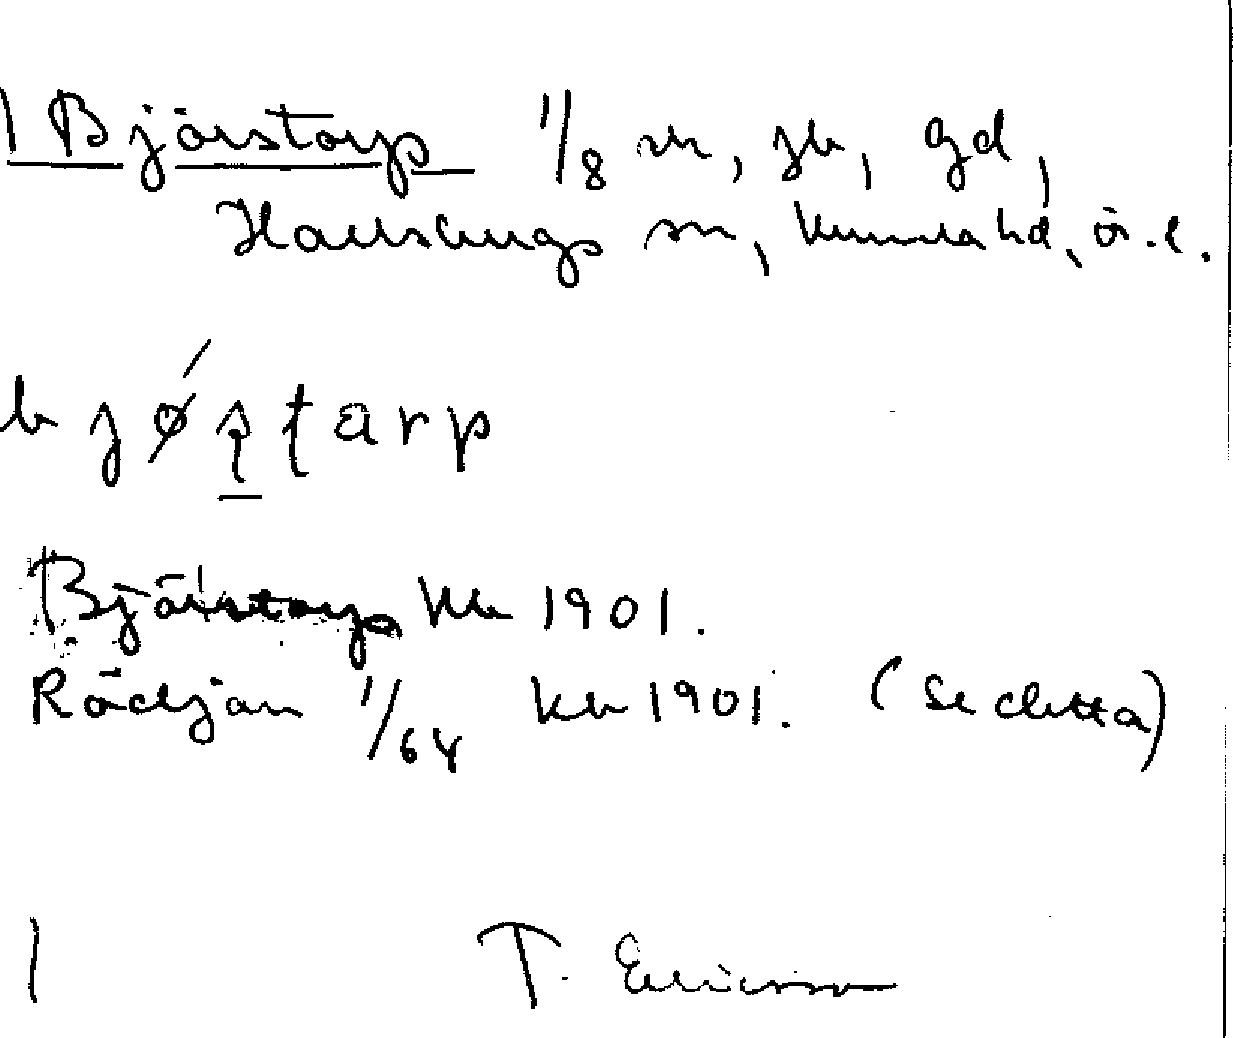 1 Björstorp 1/8 m, jb, gd,
Hallsbergs sn, Kumla hd, ör. l.
b j ǿ ʂ ʈ a r p
Björstorp kb 1901.
Rödjan 1/64 kb 1901. (Se detta)
1 T. Ericsson